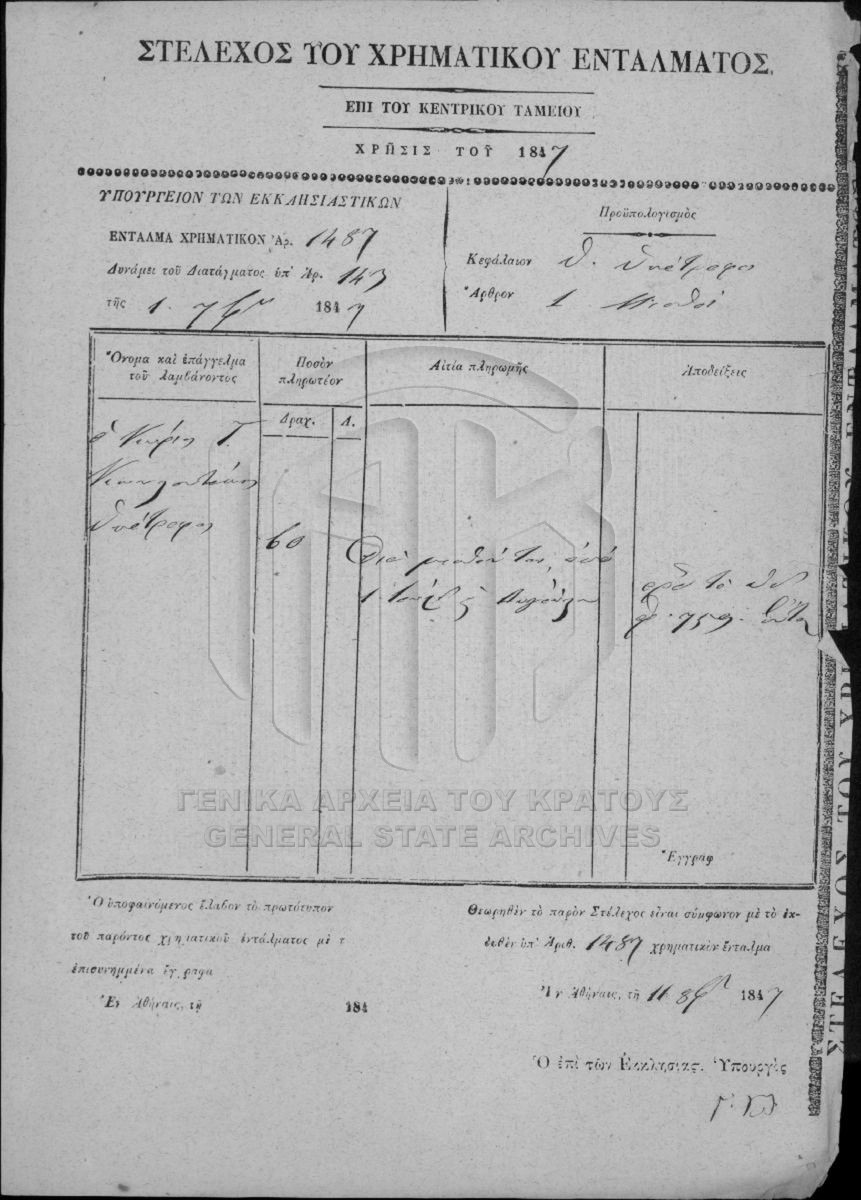 ΣΤΕΛΕΧΟΣ ΤΟΥ ΧΡΗΜΑΤΙΚΟΥ ΕΝΤΑΛΜΑΤΟΣ.
ΕΠΙ ΤΟΥ ΚΕΝΤΡΙΚΟΥ ΤΑΜΕΙΟΥ
ΧΡΗΣΙΣ ΤΟΥ 1847
ΥΠΟΥΡΓΕΙΟΝ ΤΩΝ ΕΚΚΛΗΣΙΑΣΤΙΚΩΝ
ΕΝΤΑΛΜΑ ΧΡΗΜΑΤΙΚΟΝ Ἀρ. 1487
Δυνάμει τοῦ Διατάγματος ὑπ' Ἀρ. 143
τῆς 1 7βρ 1847
Προϋπολογισμὸς
Κεφάλαιον Θ. Ὑπότροφοι
Ἄρθρον 1 Μισθοί
Ὄνομα καὶ ἐπάγγελμα
τοῦ λαμβάνοντος
Ποσὸν
πληρωτέον
Αἰτία πληρωμῆς
Ἀποδείξεις
Δραχ. Λ.
ὁ Κύριος Γ.
Ὑπότροφος
60
Διὰ μισθόν του, ἀπὸ
1
759
Ἔγγραφ
ΓΕΝΙΚΑ ΑΡΧΕΙΑ ΤΟΥ ΚΡΑΤΟΥΣ
GENERAL STATE ARCHIVES
Ὁ ὑποφαινόμενος ἔλαβον τὸ πρωτότυπον
τοῦ παρόντος χρηματικοῦ ἐντάλματος μὲ τ
ἐπισυνημμένα ἔγγραφα
Ἐν Ἀθήναις, τῇ 184
Θεωρηθὲν τὸ παρὸν Στέλεχος εἶναι σύμφωνον μὲ τὸ ἐκ-
δοθὲν ὑπ' Ἀριθ. 1487 χρηματικὸν ἔνταλμα
Ἐν Ἀθήναις, τῇ 11 8βρ 1847
Ὁ ἐπὶ τῶν Ἐκκλησιας. Ὑπουργὸς
ΣΤΕΛΕΧΟΣ ΤΟΥ ΧΡΗ